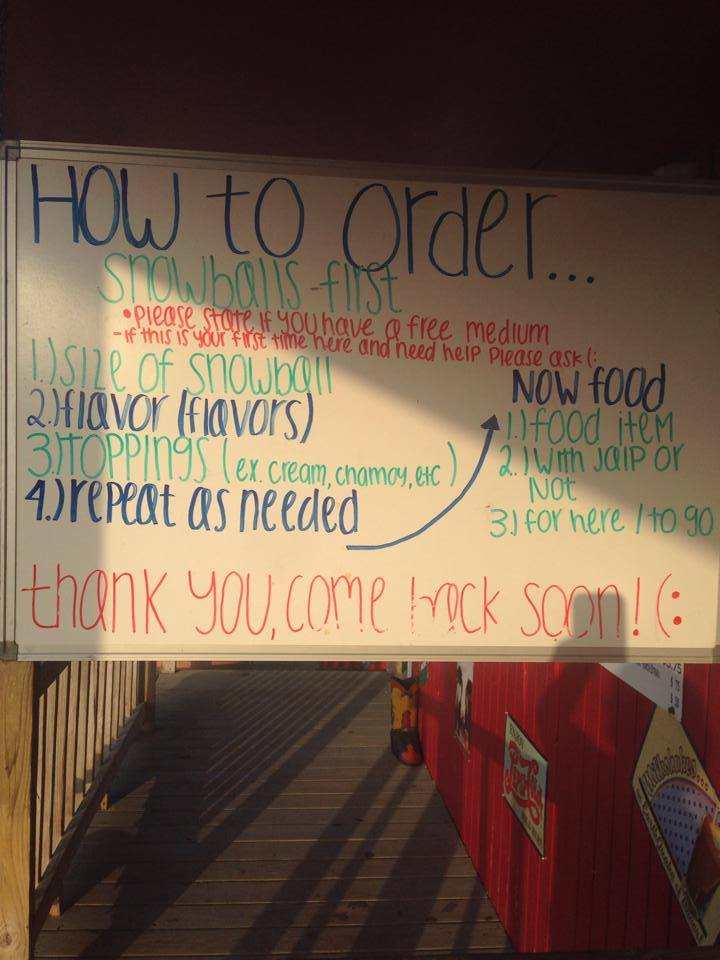 HOW to order...
snowballs first
•please state if you have a free medium
-if this is your first time here and need help please ask (:
1.) size of snowball
2.) flavor (flavors)
3.) toppings (ex. cream, chamoy, etc)
4.) repeat as needed
NOW food
1.) food item
2.) with jalp or
Not
3.) for here / to go
thank you, come back soon! (:
Milkshakes